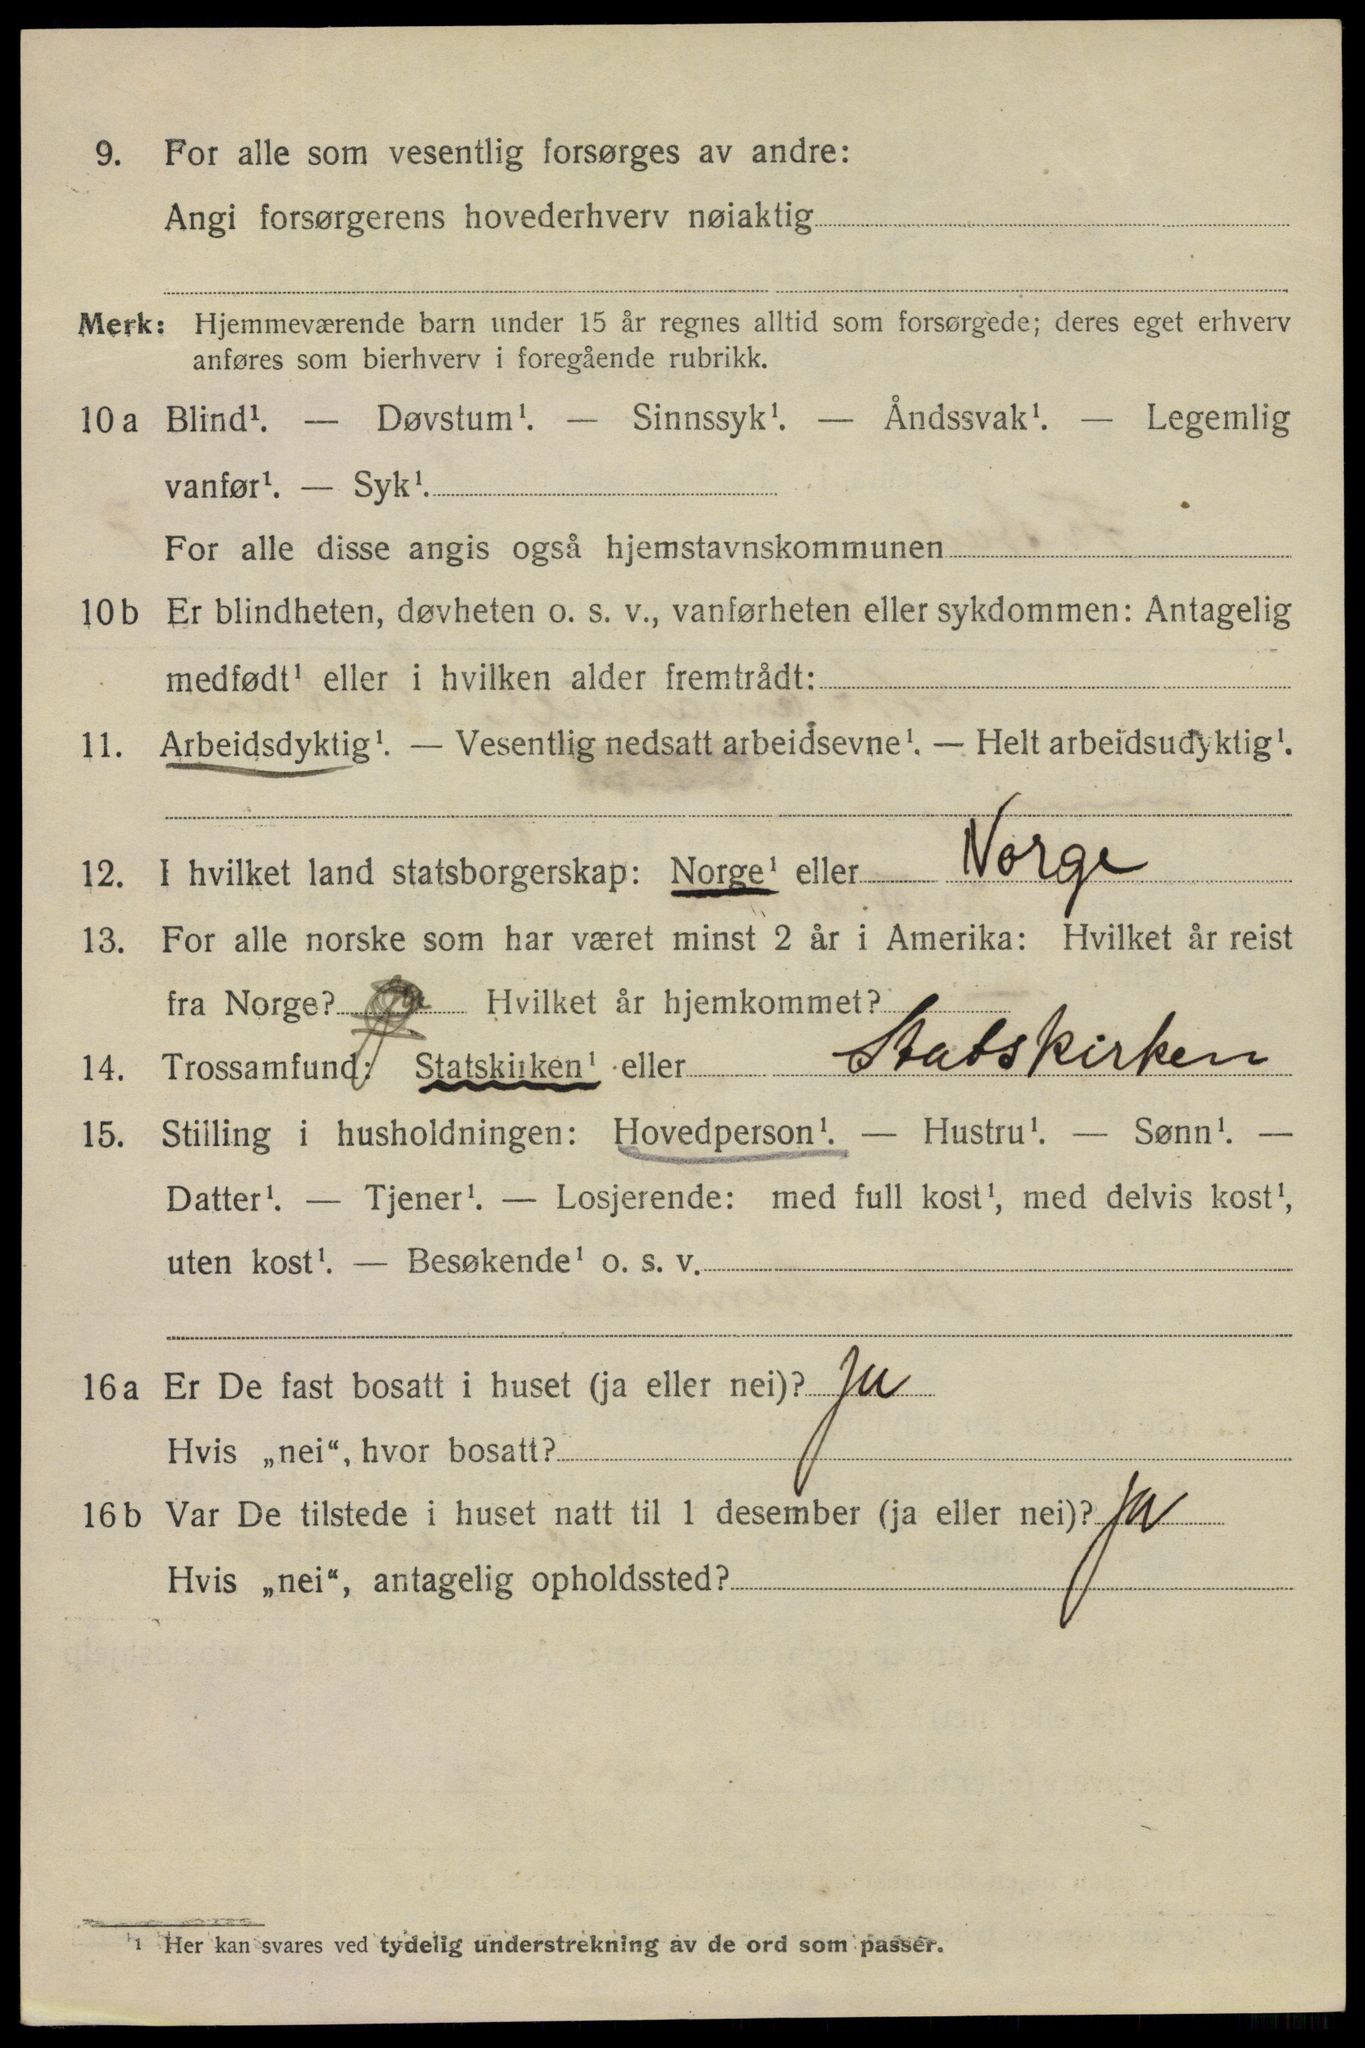 9. For alle som vesentlig forsørges av andre:
Angi forsørgerens hovederhverv nøiaktig
Merk: Hjemmeværende barn under 15 år regnes alltid som forsørgede; deres eget erhverv
anføres som bierhverv i foregående rubrikk.
10 a Blind¹. — Døvstum¹. — Sinnssyk¹. — Åndssvak¹. — Legemlig
vanfør¹. — Syk¹.
For alle disse angis også hjemstavnskommunen
10 b Er blindheten, døvheten o. s. v., vanførheten eller sykdommen: Antagelig
medfødt¹ eller i hvilken alder fremtrådt:
11. Arbeidsdyktig¹. — Vesentlig nedsatt arbeidsevne¹. — Helt arbeidsudyktig¹.
12. I hvilket land statsborgerskap: Norge¹ eller Norge
13. For alle norske som har været minst 2 år i Amerika: Hvilket år reist
fra Norge? Hvilket år hjemkommet?
14. Trossamfund: Statskirken¹ eller Statskirken
15. Stilling i husholdningen: Hovedperson¹. — Hustru¹. — Sønn¹. —
Datter¹. — Tjener¹. — Losjerende: med full kost¹, med delvis kost¹,
uten kost¹. — Besøkende¹ o. s. v.
16 a Er De fast bosatt i huset (ja eller nei)? Ja
Hvis „nei“, hvor bosatt?
16 b Var De tilstede i huset natt til 1 desember (ja eller nei)? Ja
Hvis „nei“, antagelig opholdssted?
¹ Her kan svares ved tydelig understrekning av de ord som passer.